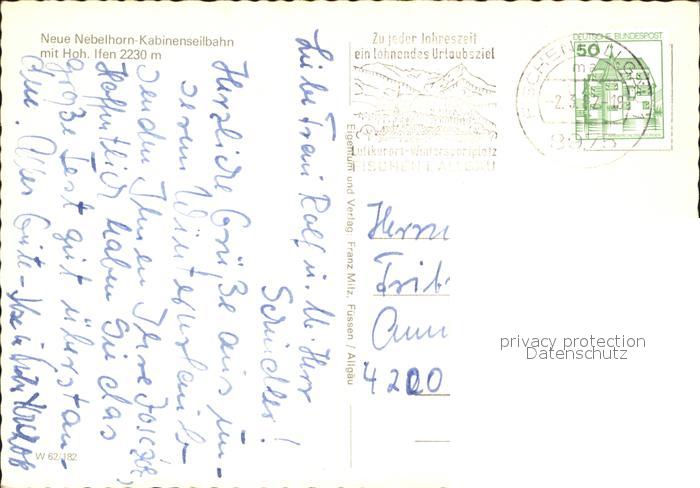 Neue Nebelhorn-Kabinenseilbahn
mit Hoh. Ifen 2230 m
Zu jeder Jahreszeit
ein lohnendes Urlaubsziel
Luftkurort-Wintersportplatz
FISCHEN I. ALLGÄU
DEUTSCHE BUNDESPOST
50
8975
Liebe Frau Rolf u. lb. Herr
Schindler!
Herzliche Grüße aus un-
serem Winterurlaub
senden Ihnen Ihre
Hoffentlich haben Sie das
große Fest gut überstan-
den. Alles Gute -
Eigentum und Verlag: Franz Milz, Füssen / Allgäu
Herrn
Frit
4200
W 62/182
privacy protection
Datenschutz